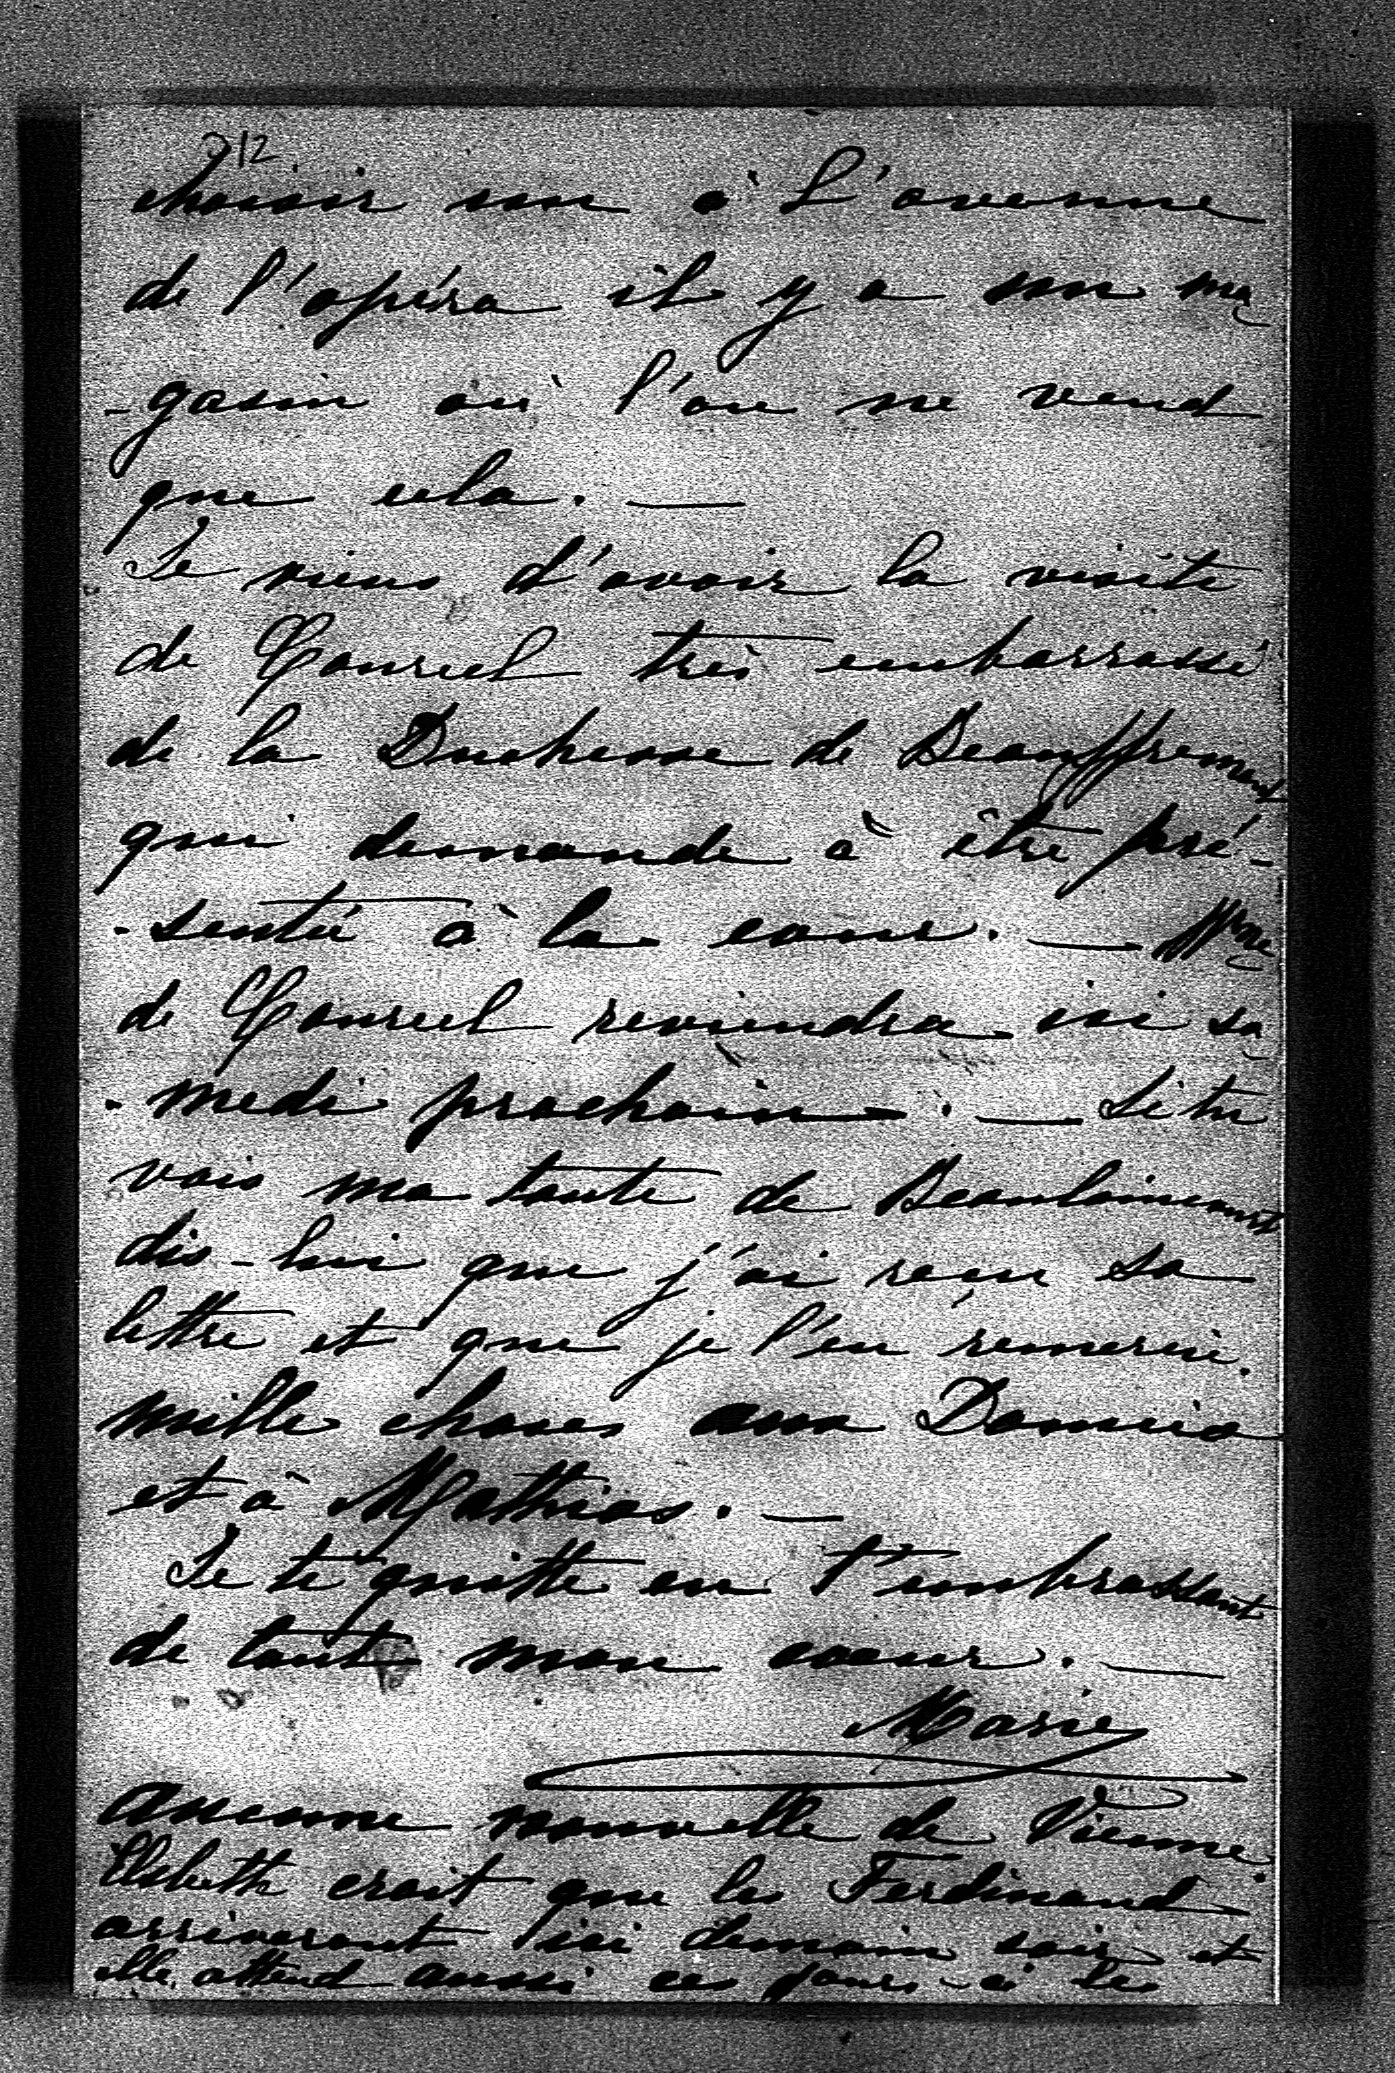 212
choisir un à L'avenue
de l'opéra il y a un ma
-gasin où l'on ne vend
que cela. —
Je viens d'avoir la visite
de Courcel très embarrassé
de la Duchesse de Beauffremont
qui demande à être pré-
-sentée à la cour. — Mme
de Courcel reviendra ici sa
-medi prochain. — Si tu
vois ma tante de Beaulaincourt
dis-lui que j'ai reçu sa
lettre et que je l'en remercie.
mille choses aux
et à Mathias. —
Je te quitte en t'embrassant
de tout mon coeur. —
Marie
aucune nouvelle de Vienne.
Elsbeth croit que les Ferdinand
arriveront ici demain soir et
elle attend aussi ces jours-ci les